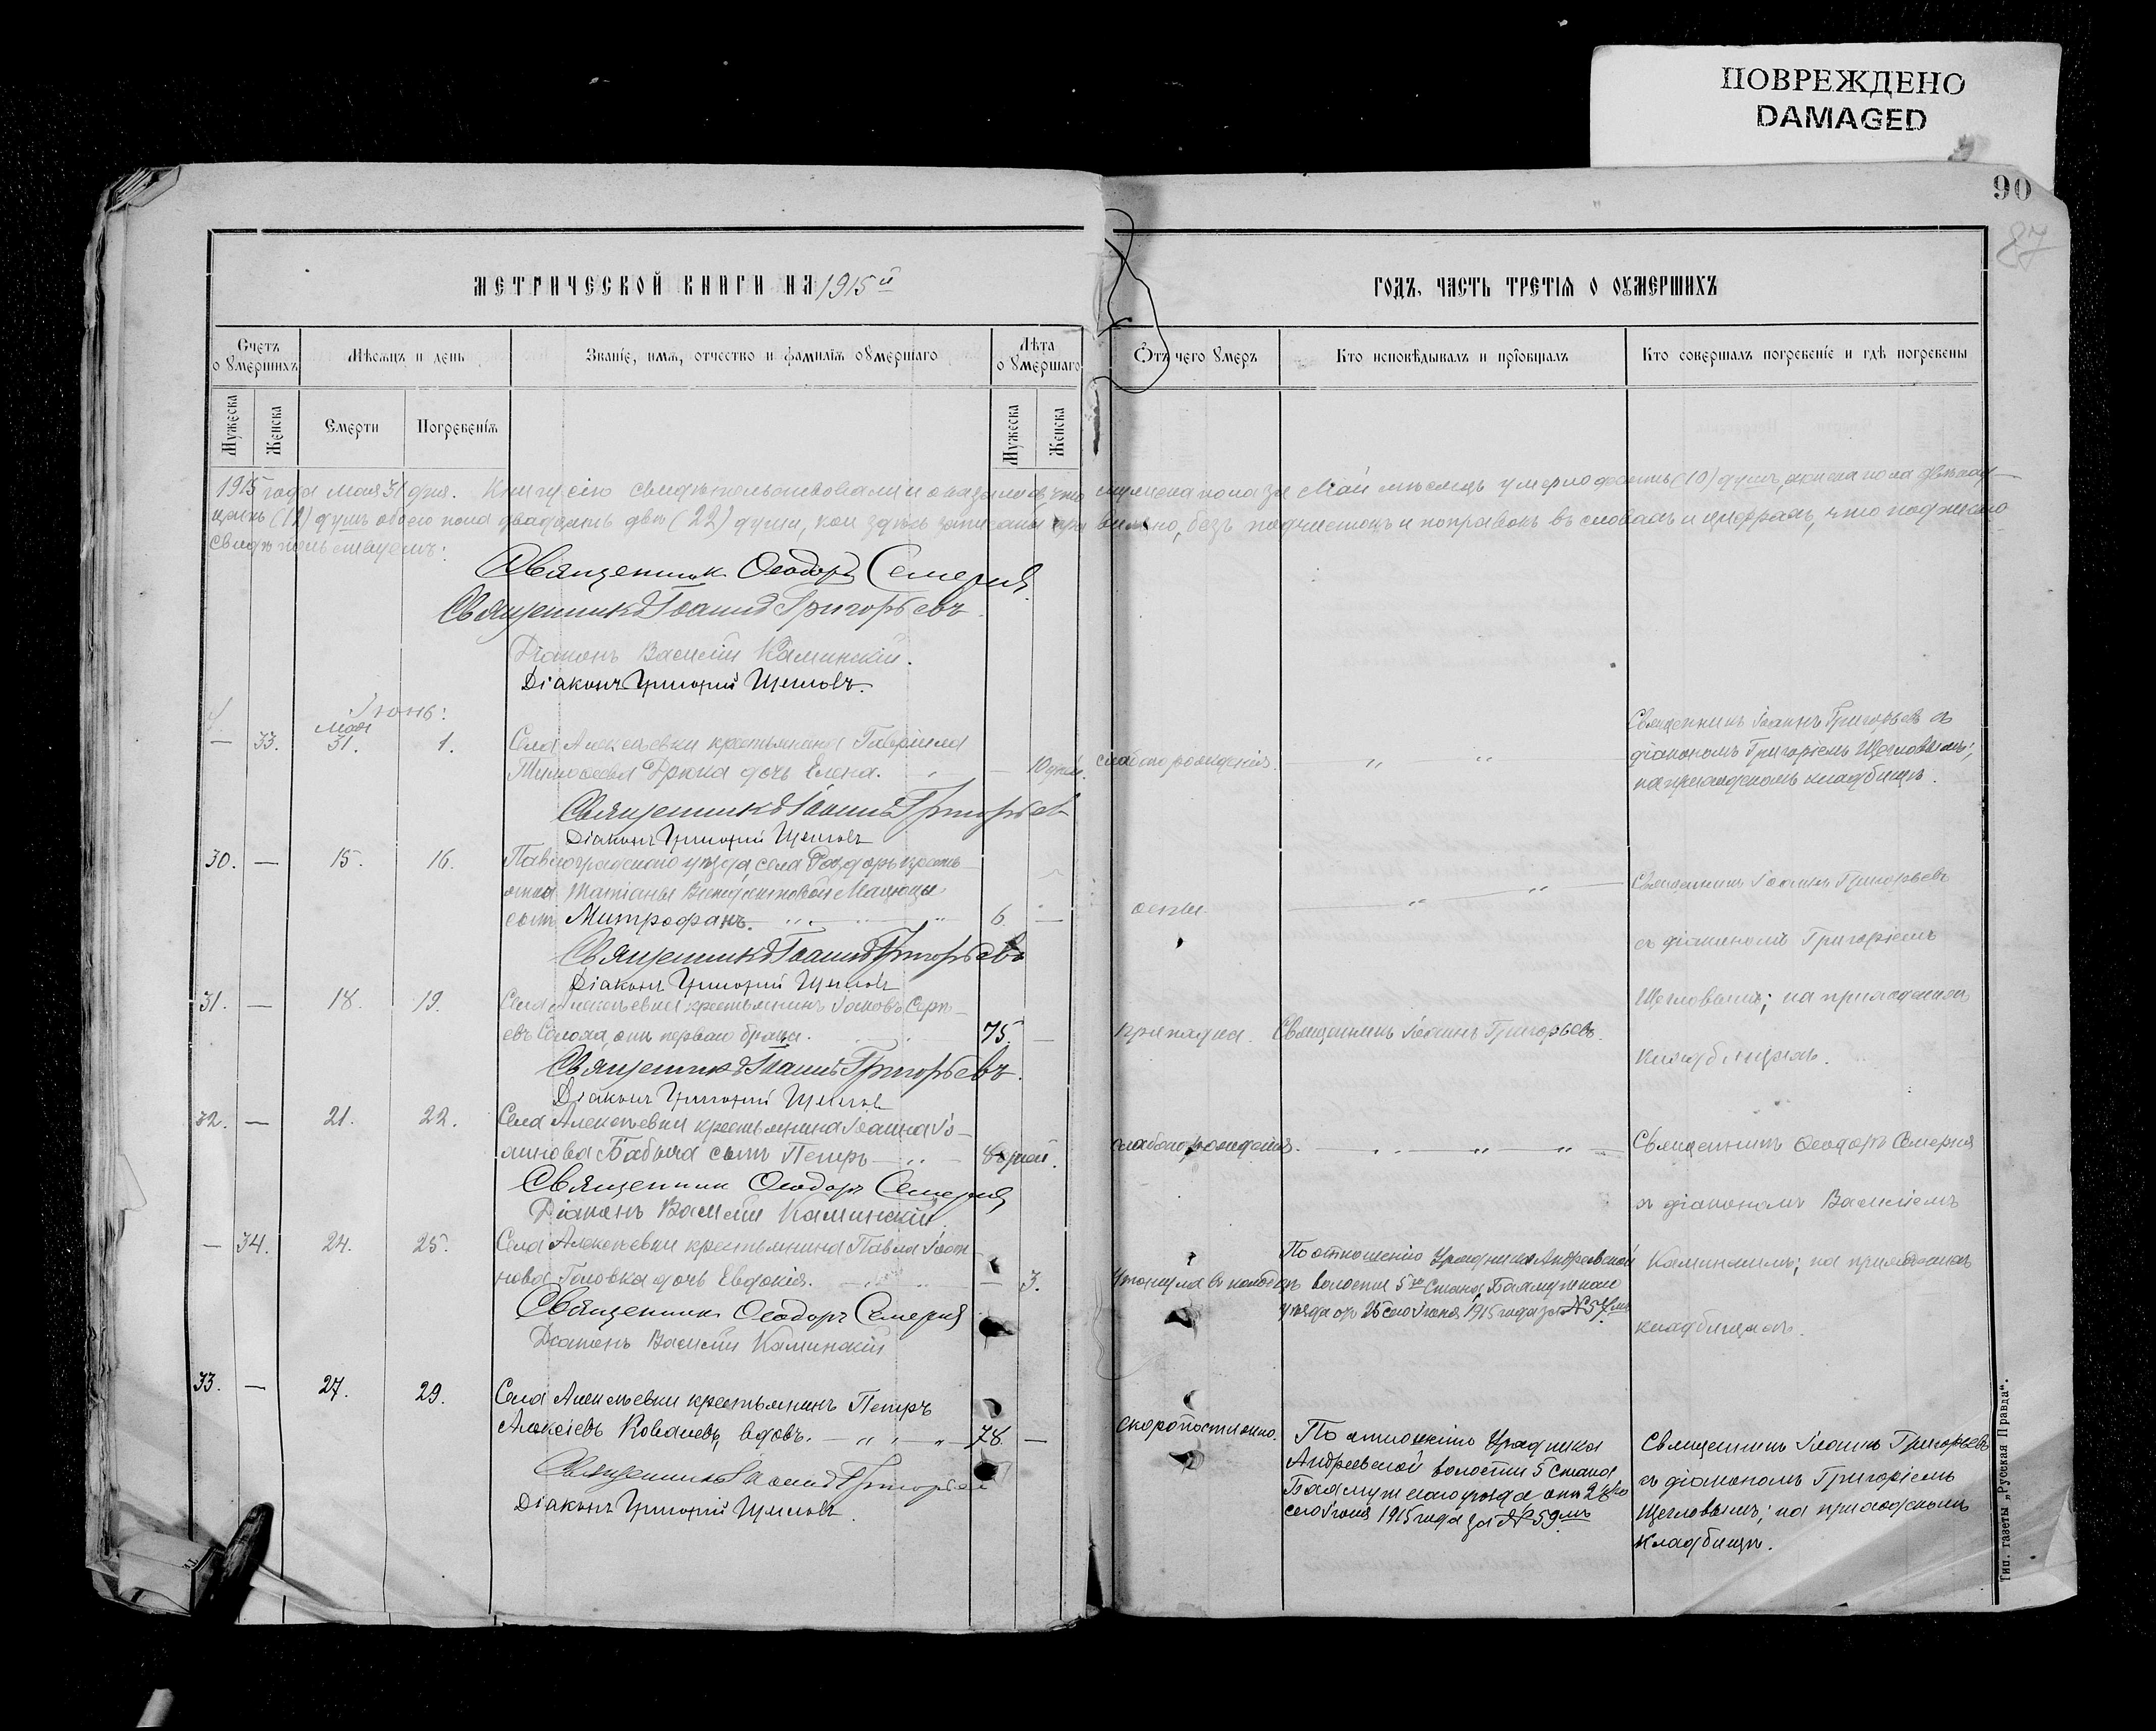 ПОВРЕЖДЕНО
DAMAGED
90
87
МЕТРИЧЕСКОЙ КНИГИ НА 1915й
ГОДЪ, ЧАСТЬ ТРЕТІЯ О ОУМЕРШИХЪ
Счетъ оумершихъ
Мѣсяцъ и день
Званіе, имя, отчество и фамилія оумершаго
Лѣта оумершаго
Отъ чего умеръ
Кто исповѣдывалъ и пріобщалъ
Кто совершалъ погребеніе и гдѣ погребены
Мужеска
Женска
Смерти
Погребенія
Мужеска
Женска
1915 года мая 31 дня. Книгу сію свидѣтельствовали и оказалось, что мужеска пола за Май мѣсяцъ умерло десять (10) душъ, женска пола двѣнад-
цать (12) душъ обоего пола двадцать двѣ (22) души, кои здѣсь записаны правильно, безъ подчистокъ и поправокъ въ словахъ и цифрахъ, что подписью
свидѣтельствуемъ:
Священник Ѳеодоръ Семерня
Священникъ Іоаннъ Григорьевъ
Діаконъ Василій Каминскій.
Діаконъ Григорій Щегловъ.
Іюнь:
Мая
— 33. 31. 1. Села Алексѣевки крестьянина Гавріила
Тимоѳеева Дрюка дочь Елена. — 10 дней. слаборожденія.
Священникъ Іоаннъ Григорьевъ съ
діакономъ Григоріемъ Щегловымъ;
на приходскомъ кладбищѣ.
Священникъ Іоаннъ Григорьев
Діаконъ Григорій Щегловъ
30. — 15. 16. Павлоградскаго уѣзда, села Роздоръ крестъ-
янки Татіаны
сынъ Митрофанъ. 6. — оспы.
Священникъ Іоаннъ Григорьевъ
съ діакономъ Григоріемъ
Щегловымъ; на приходскомъ
кладбищѣ.
Священникъ Іоаннъ Григорьевъ
Діаконъ Григорій Щегловъ
31. — 18. 19. Села Алексѣевки крестьянинъ Іаковъ Серг-
евъ перваго брака. 75. — припадка. Священникъ Іоаннъ Григорьевъ.
Священникъ Іоаннъ Григорьевъ.
Діаконъ Григорій Щеглов
32. — 21. 22. Села Алексѣевки крестьянина Іоанна Іо-
аннова Бабыча сынъ Петръ — 8 дней. слаборожденія.
Священникъ Ѳеодоръ Семерня
съ діакономъ Василіемъ
Каминскимъ; на приходскомъ
кладбищѣ.
Священник Ѳеодоръ Семерня
Діаконъ Василій Каминскій
— 34. 24. 25. Села Алексѣевки крестьянина Павла Іоан-
нова Головка дочь Евдокія. — 3. Утонула въ колодцѣ
По отношенію Урядника Андреевской
волости 5го Стана Бахмутскаго
уѣзда отъ 25 сего Іюня 1915 года за № 57мъ
Священник Ѳеодоръ Семерня
Діаконъ Василій Каминскій
33. — 27. 29. Села Алексѣевки крестьянинъ Петръ
Алексіевъ Ковалевъ, вдовъ. 78. — скоропостижно.
По отношенію Урядника
Андреевской волости 5 Стана
Бахмутскаго уѣзда отъ 28го
сего Іюня 1915 года за № 59мъ
Священникъ Іоаннъ Григорьевъ
съ діакономъ Григоріемъ
Щегловымъ; на приходскомъ
кладбищѣ.
Священникъ Іоаннъ Григорьев
Діаконъ Григорій Щегловъ.
Тип. газеты „Русская Правда“.